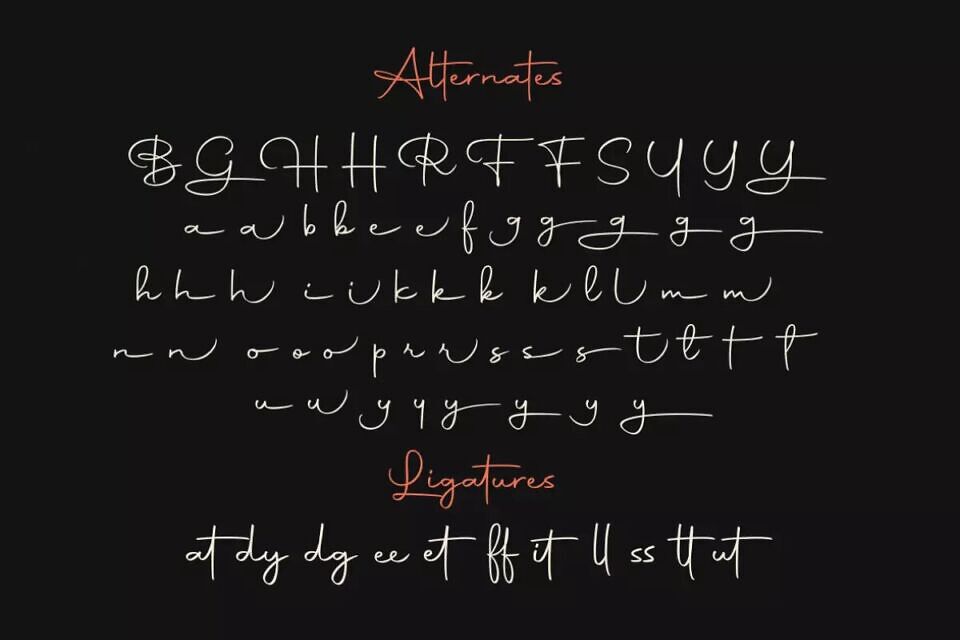 Alternates
B G H H R F F S Y Y Y
a a b b e e f g g g g g
h h h i i k k k k l l m m
n n o o o p r r s s s t t t t
u u y y y y y y
Ligatures
at dy dg ee et ff it ll ss tt ut